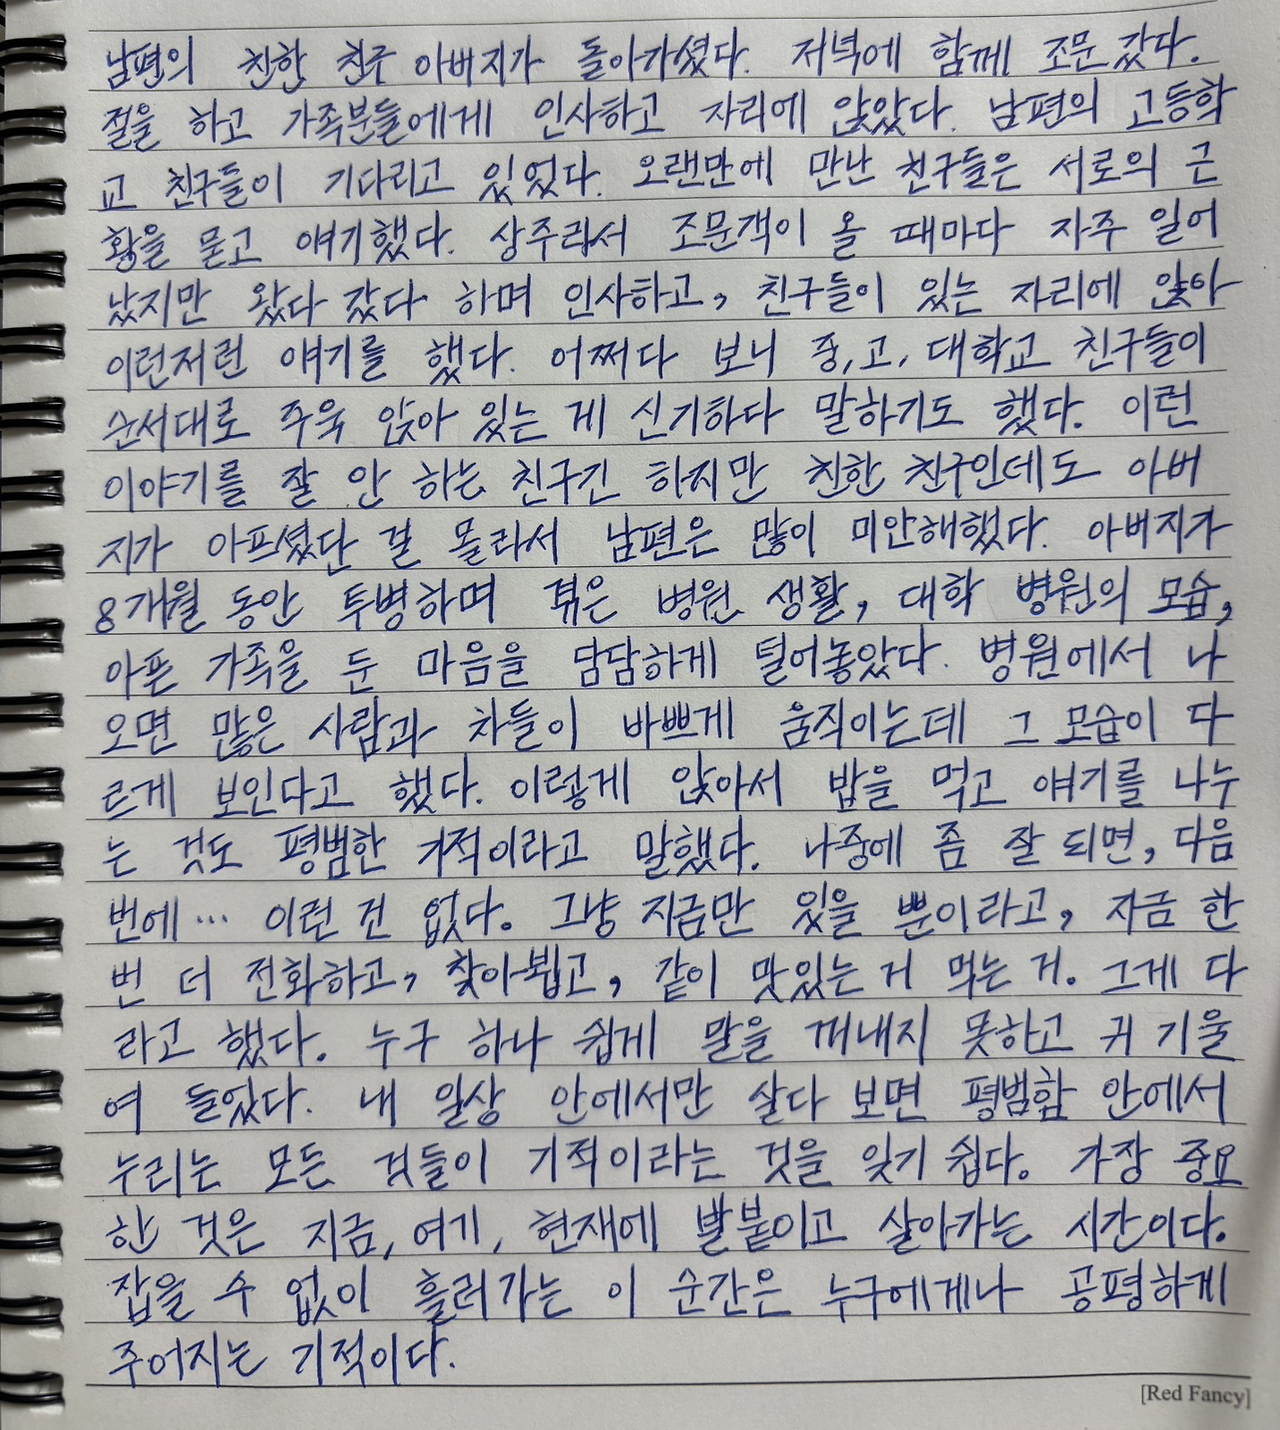 남편의 친한 친구 아버지가 돌아가셨다. 저녁에 함께 조문 갔다.
절을 하고 가족분들에게 인사하고 자리에 앉았다. 남편의 고등학
교 친구들이 기다리고 있었다. 오랜만에 만난 친구들은 서로의 근
황을 묻고 얘기했다. 상주라서 조문객이 올 때마다 자주 일어
났지만 왔다 갔다 하며 인사하고, 친구들이 있는 자리에 앉아
이런저런 얘기를 했다. 어쩌다 보니 중,고,대학교 친구들이
순서대로 주욱 앉아 있는 게 신기하다 말하기도 했다. 이런
이야기를 잘 안 하는 친구긴 하지만 친한 친구인데도 아버
지가 아프셨단 걸 몰라서 남편은 많이 미안해했다. 아버지가
8개월 동안 투병하며 겪은 병원 생활, 대학 병원의 모습,
아픈 가족을 둔 마음을 담담하게 털어놓았다. 병원에서 나
오면 많은 사람과 차들이 바쁘게 움직이는데 그 모습이 다
르게 보인다고 했다. 이렇게 앉아서 밥을 먹고 얘기를 나누
는 것도 평범한 기적이라고 말했다. 나중에 좀 잘 되면, 다음
번에… 이런 건 없다. 그냥 지금만 있을 뿐이라고, 지금 한
번 더 전화하고, 찾아뵙고, 같이 맛있는 거 먹는 거. 그게 다
라고 했다. 누구 하나 쉽게 말을 꺼내지 못하고 귀 기울
여 들었다. 내 일상 안에서만 살다 보면 평범함 안에서
누리는 모든 것들이 기적이라는 것을 잊기 쉽다. 가장 중요
한 것은 지금, 여기, 현재에 발붙이고 살아가는 시간이다.
잡을 수 없이 흘러가는 이 순간은 누구에게나 공평하게
주어지는 기적이다.
[Red Fancy]